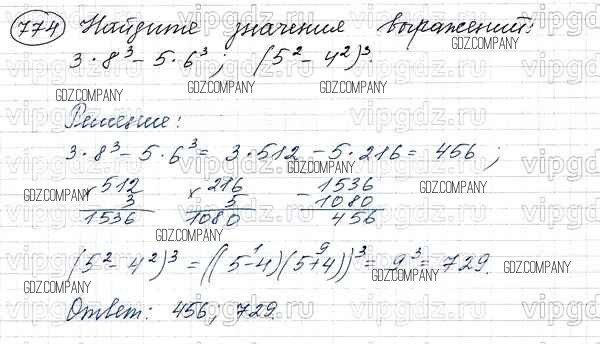 774 Найдите значения выражений:
3·8³ – 5·6³; (5² – 4²)³.
Решение:
3·8³ – 5·6³ = 3·512 – 5·216 = 456;
× 512 × 216 – 1536
3 5 1080
1536 1080 456
1 9
(5² – 4²)³ = ((5–4)(5+4))³ = 9³ = 729.
Ответ: 456; 729.
GDZ.COMPANY
vipgdz.ru